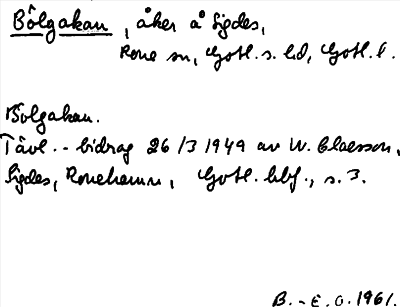 Bölgakau, åker å Sigdes,
Rone sn, Gotl. s. hd, Gotl. l.
Bölgakau.
Tävl.-bidrag 26/3 1949 av W. Claesson,
Sigdes, Ronehamn, Gotl. , s. 3.
B.-E. O. 1961.